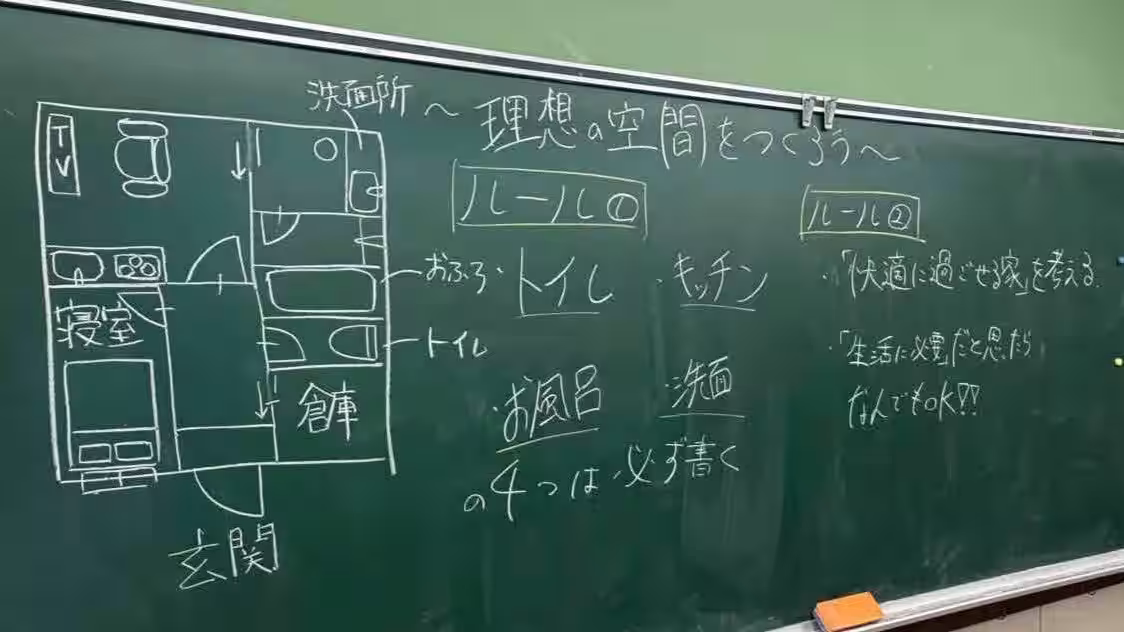 洗面所
～理想の空間をつくろう～
TV
おふろ
寝室
トイレ
倉庫
玄関
ルール①
・トイレ ・キッチン
・お風呂 ・洗面
の4つは必ず書く
ルール②
・「快適に過ごせる家」を考える.
・「生活に必要」だと思ったら
なんでもOK!!